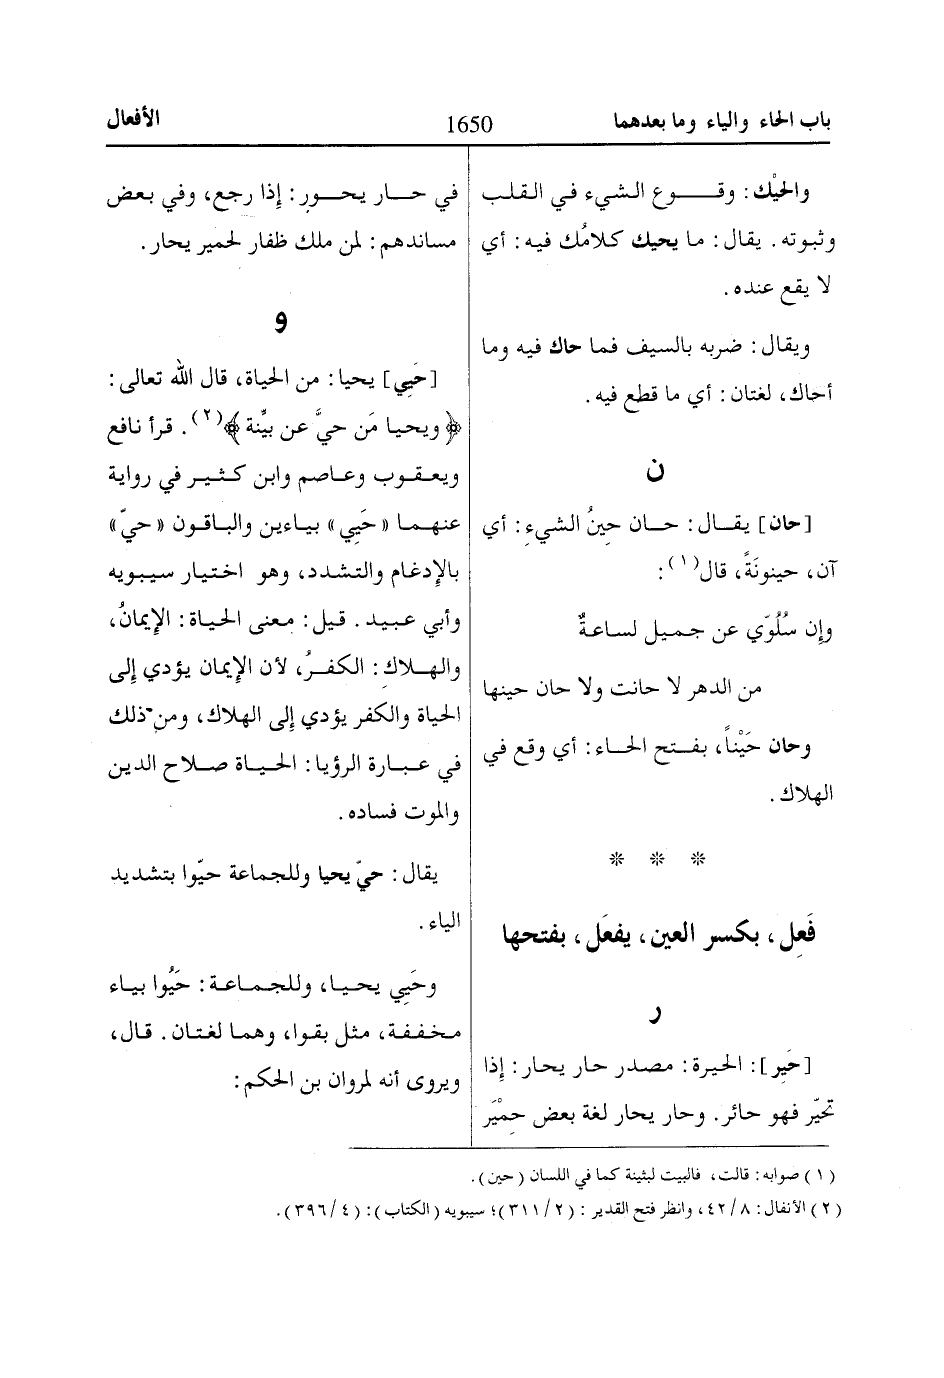 باب الحاء والياء وما بعدهما
1650
الأفعال
والحَيْك: وقوع الشيء في القلب
وثبوته. يقال: ما يحيك كلامُك فيه: أي
لا يقع عنده.
ويقال: ضربه بالسيف فما حاك فيه وما
أحاك، لغتان: أي ما قطع فيه.
ن
[حان] يقال: حان حينُ الشيءِ: أي
آن، حينونَةً، قال(١):
وإن سُلُوّي عن جميل لساعةٌ
من الدهر لا حانت ولا حان حينها
وحان حَيْناً، بفتح الحاء: أي وقع في
الهلاك.
* * *
فَعِل، بكسر العين، يفعَل، بفتحها
ر
[حَيِر]: الحيرة: مصدر حار يحار: إذا
تحيّر فهو حائر. وحار يحار لغة بعض حِمْيَر
في حار يحور: إذا رجع، وفي بعض
مساندهم: لمن ملك ظفار لحمير يحار.
و
[حَيِي] يحيا: من الحياة، قال الله تعالى:
﴿ويحيا مَن حيَّ عن بيِّنة﴾(٢). قرأ نافع
ويعقوب وعاصم وابن كثير في رواية
عنهما «حَيِي» بياءين والباقون «حيّ»
بالإدغام والتشدد، وهو اختيار سيبويه
وأبي عبيد. قيل: معنى الحياة: الإيمانُ،
والهلاك: الكفرُ، لأن الإيمان يؤدي إلى
الحياة والكفر يؤدي إلى الهلاك، ومن ذلك
في عبارة الرؤيا: الحياة صلاح الدين
والموت فساده.
يقال: حيّ يحيا وللجماعة حيّوا بتشديد
الياء.
وحَيِي يحيا، وللجماعة: حَيُوا بياء
مخففة، مثل بقوا، وهما لغتان. قال،
ويروى أنه لمروان بن الحكم:
(١) صوابه: قالت، فالبيت لبثينة كما في اللسان (حين).
(٢) الأنفال: ٤٢/٨، وانظر فتح القدير: (٣١١/٢)؛ سيبويه (الكتاب): (٣٩٦/٤).